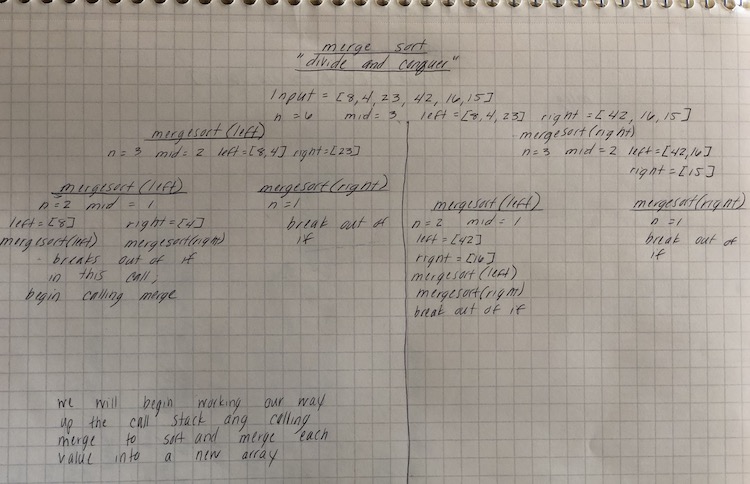 merge sort
"divide and conquer"
Input = [8,4,23, 42, 16,15]
n = 6 mid = 3 left = [8,4,23] right = [42, 16,15]
mergesort (left)
n = 3 mid = 2 left = [8,4] right = [23]
mergesort (left)
n = 2 mid = 1
left = [8] right = [4]
mergesort(left) mergesort(right)
breaks out of if
in this call,
begin calling merge
mergesort (right)
n = 1
break out of
if
mergesort (right)
n = 3 mid = 2 left = [42,16]
right = [15]
mergesort (left)
n = 2 mid = 1
left = [42]
right = [16]
mergesort (left)
mergesort (right)
break out of if
mergesort (right)
n = 1
break out of
if
we will begin working our way
up the call stack ang calling
merge to sort and merge each
value into a new array